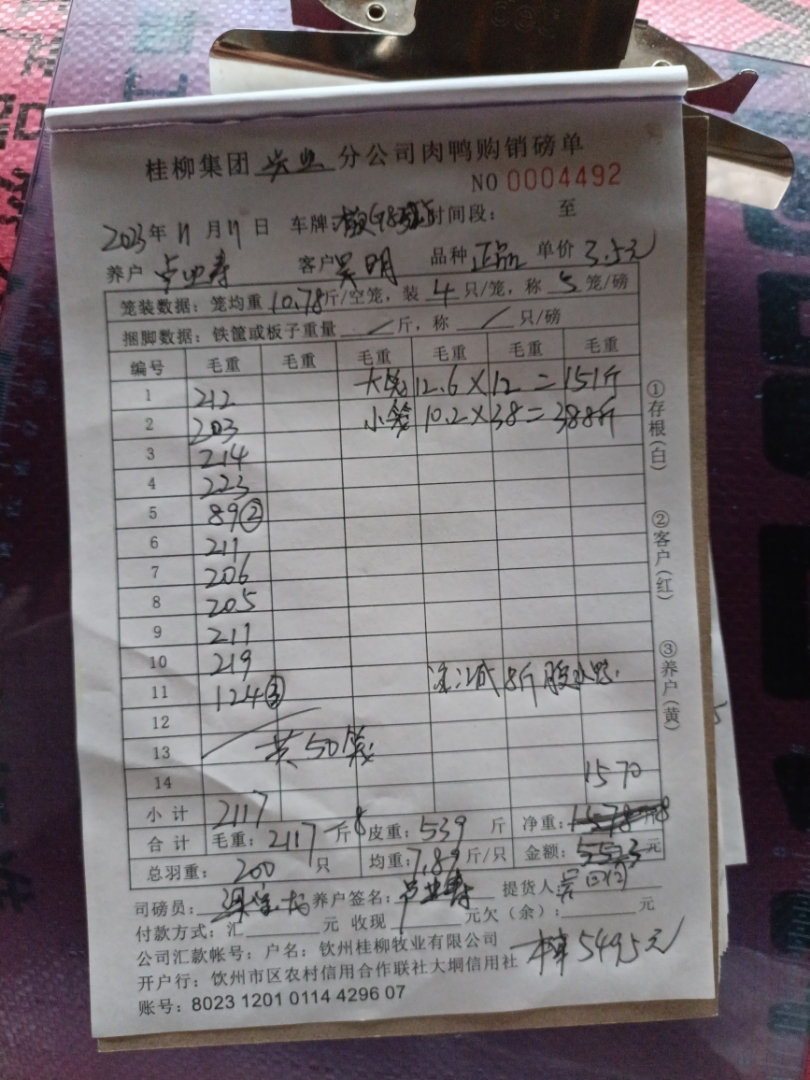 桂柳集团 分公司肉鸭购销磅单
NO 0004492
2023年 11 月 11 日 车牌: 时间段: 至
养户 卢业寿 客户 吴明 品种 正品 单价 3.5元
笼装数据: 笼均重 10.78 斤/空笼, 装 4 只/笼, 称 5 笼/磅
捆脚数据: 铁筐或板子重量 / 斤, 称 / 只/磅
编号 毛重 毛重 毛重 毛重 毛重 毛重
1 212 大笼 12.6×12=151斤
2 203 小笼 10.2×38=388斤
3 214
4 223
5 89②
6 211
7 206
8 205
9 211
10 219
11 124③ 减8斤
12
13 共50笼
14 1570
小计 2117
合计 毛重: 2117 斤 皮重: 539 斤 净重:
总羽重: 200 只 均重: 7.89 斤/只 金额: 元
司磅员: 养户签名: 卢业寿 提货人:
付款方式: 汇 元 收现 元欠(余): 元
公司汇款帐号: 户名: 钦州桂柳牧业有限公司
开户行: 钦州市区农村信用合作联社大垌信用社 5495元
账号: 8023 1201 0114 4296 07
①存根(白)
②客户(红)
③养户(黄)